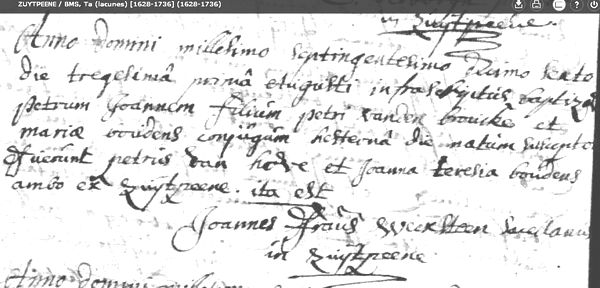 ZUYTPEENE / BMS, Ta (lacunes) [1628-1736] (1628-1736)
in Zuytpeene.
Anno domini millesimo septingentesimo decimo sexto
die trigesimâ primâ Augusti infrascriptus baptizavi
petrum Joannem filium petri vanden broucke et
mariæ boudens conjugum hesternâ die natum susceptores
fuerunt petrus van hove et Joanna teresia boudens
ambo ex Zuytpeene. ita est
Joannes Weexsteen
in Zuytpeene
Anno domini